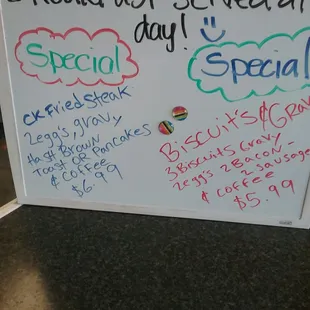 served all
day!
Special
CK Fried Steak
2egg's, gravy
Hash Brown
Toast OR Pancakes
& Coffee
$6.99
Special
Biscuits & Gravy
3 Biscuits Gravy
2egg's 2 Bacon -
2 Sausage
& Coffee
$5.99